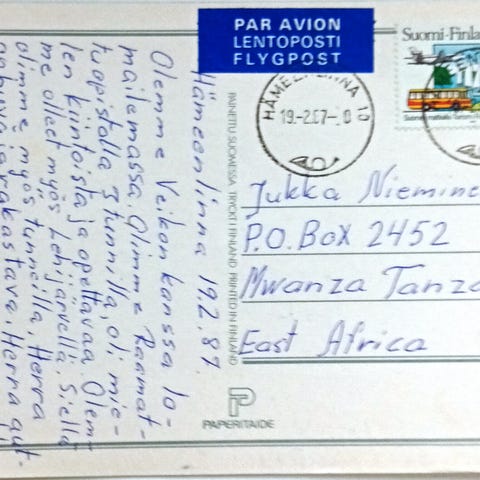 PAR AVION
LENTOPOSTI
FLYGPOST
Suomi-Finla
HÄMEENLINNA 10
19.-2.87-
Hämeenlinna 19.2.87.
Olemme Veikon kanssa lo-
mailemassa. Olimme Raamat-
tuopistolla 3 tunnilla, oli mie-
len kiintoista ja opettavaa. Olem-
me olleet myös Lehijärvellä. Siellä
olimme myös tunneilla, Herra
rakastava, Herra aut-
PAINETTU SUOMESSA TRYCKT I FINLAND PRINTED IN FINLAND
Jukka Niemine
P.O. Box 2452
Mwanza Tanza
East Africa
P
PAPERITAIDE